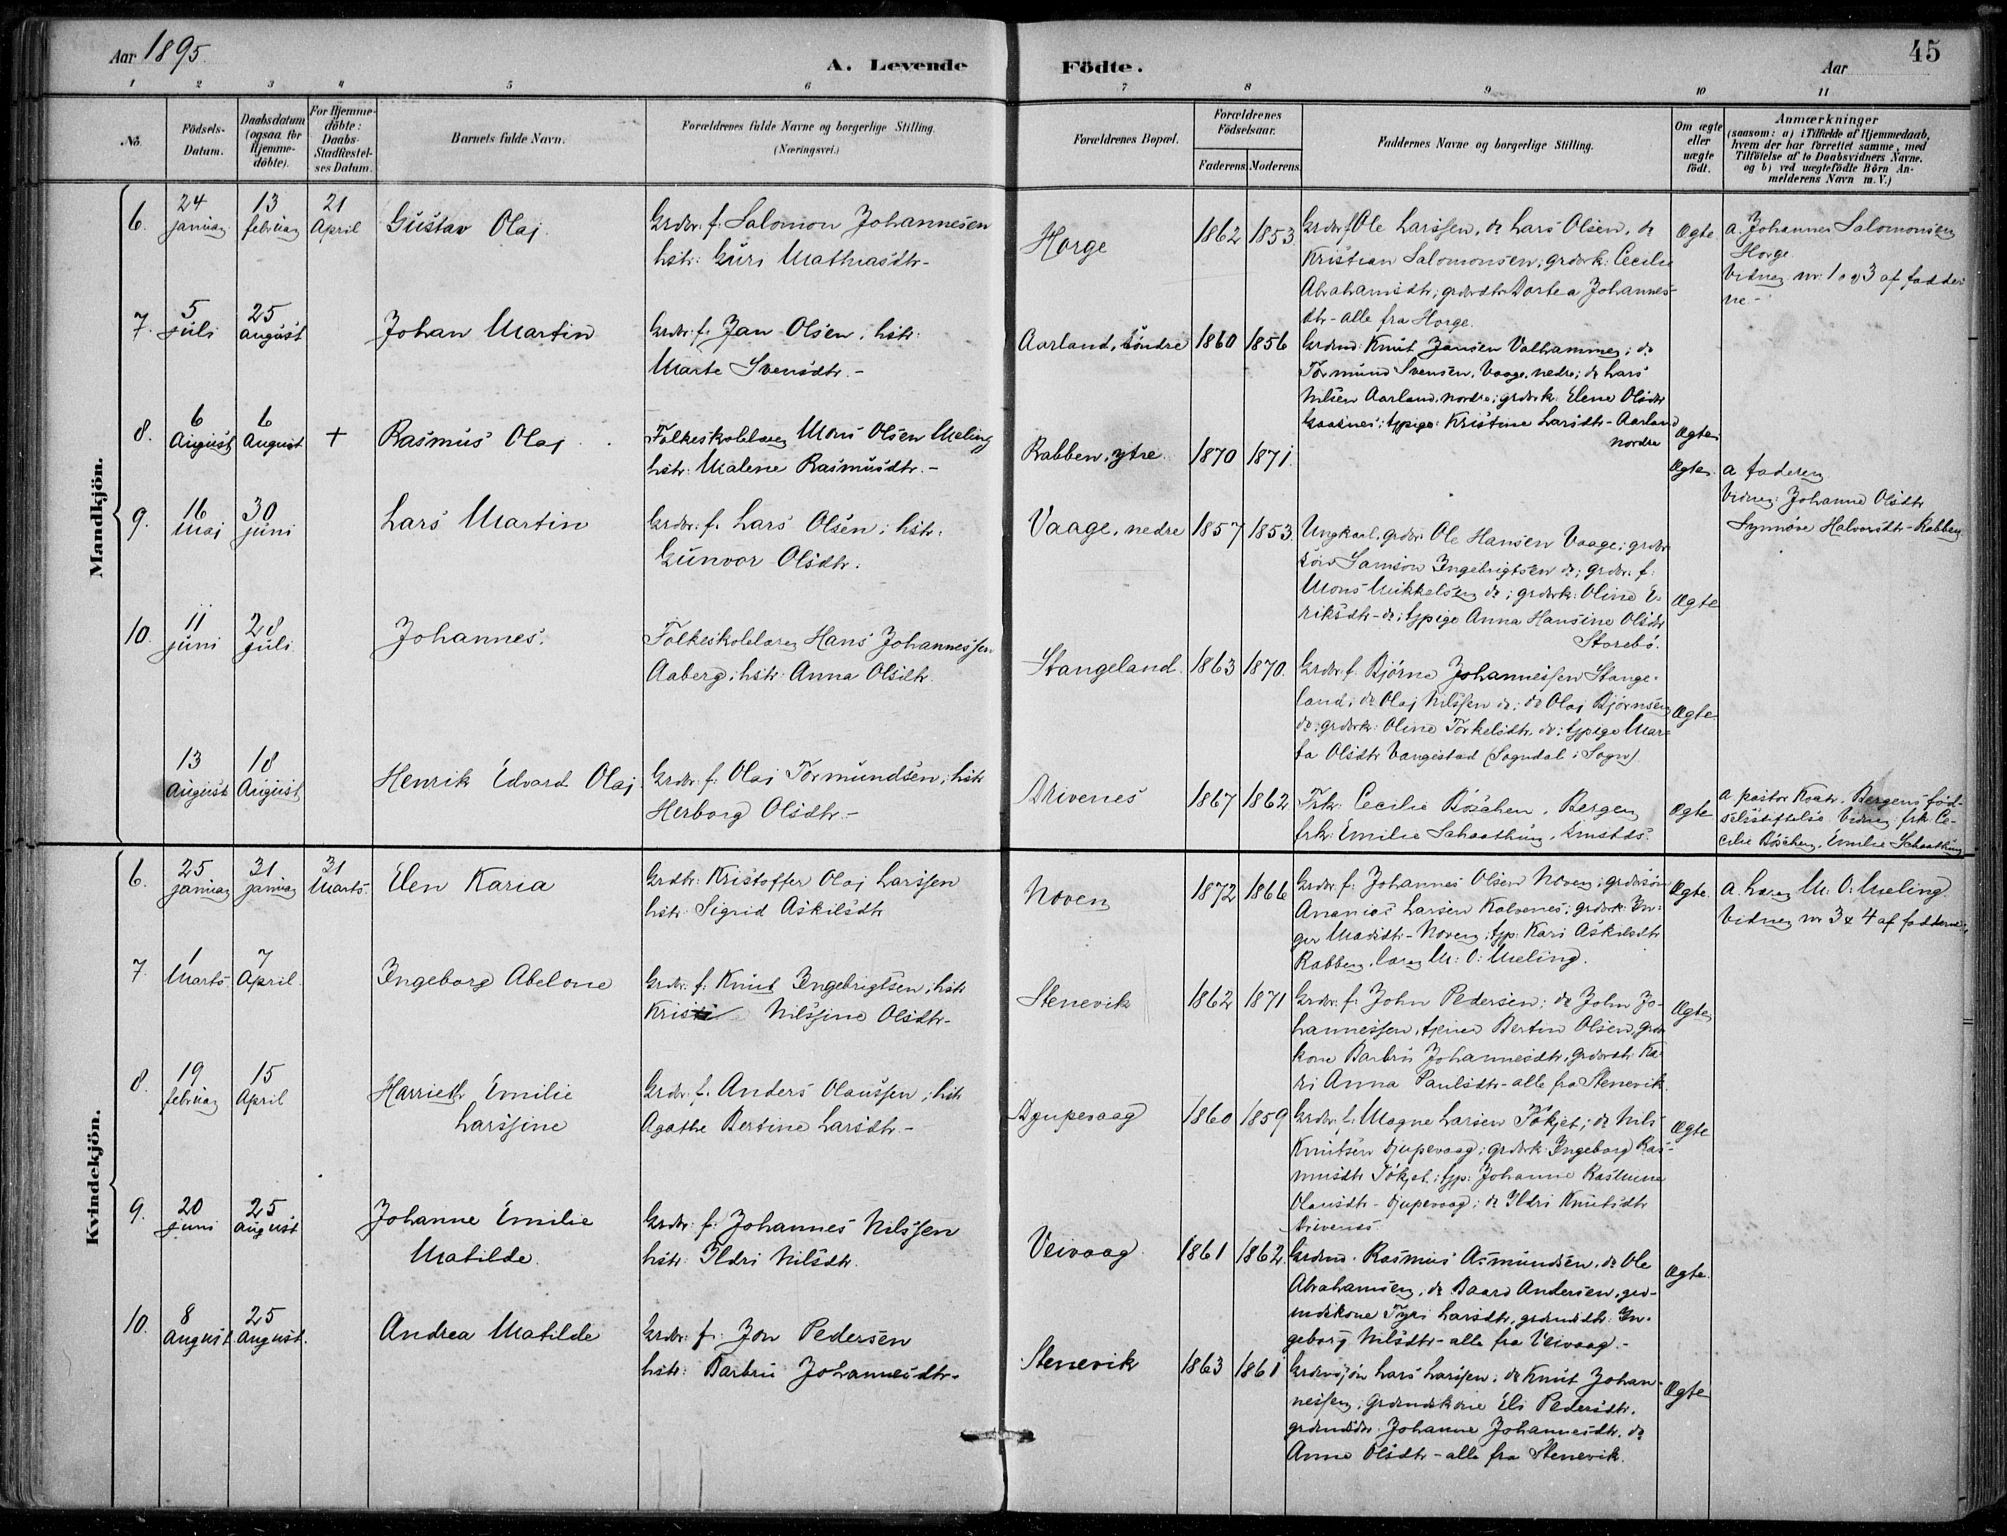 Aar 1895.
A. Levende Födte.
Aar
45
1 2 3 4 5 6 7 8 9 10 11
No.
Födsels-Datum.
Daabsdatum (ogsaa for Hjemme-döbte).
For Hjemme-döbte: Daabs-Stadfæstel-ses Datum.
Barnets fulde Navn.
Forældrenes fulde Navne og borgerlige Stilling.
(Næringsvei.)
Forældrenes Bopæl.
Forældrenes Födselsaar.
Faderens. Moderens.
Faddernes Navne og borgerlige Stilling.
Om ægte eller uægte født.
Anmærkninger
(saasom: a) i Tilfælde af Hjemmedaab,
hvem der har forrettet samme, med
Tilföielse af to Daabsvidners Navne.
og b) ved uægtefödte Børn An-
melderens Navn m. V.)
Mandkjön.
6. 24 januar 13 februar 21 April Gustav Olaj. Grdbr. f. Salomon Johannesen
hstr: Guri Mathiasdtr-
Horge 1862 1853
Grdbr f Ole Larssen, do Lars Olsen, do
Kristian Salomonsen; grdbrk: Cecilie
Abrahamsdtr; grdbrdtr Dortea Johannes-
dtr- alle fra Horge.
Ægte
a. Johannes Salomonsen
Horge
Vidner nr: 1 og 3 af fadder-
ne-
7. 5 juli 25 august Johan Martin Grdbr. f. Jan Olsen; hstr:
Marte Svensdtr.-
Aarland, söndre 1860 1856
Grdmd: Knut Jansen Valhammer; do
Tormund Svensen, Vaage, nedre; do Lars
Nilsen Aarland, nordre; grdbrk: Elene Olsdtr
Gaasnes; tjpige: Kristine Larsdtr- Aarland
nordre
Ægte
8. 6 August 6 August + Rasmus Olaj. Folkeskolelærer Mons Olsen Meling
hstr: Malene Rasmusdtr.-
Rabben, ytre 1870 1871.
Ægte
a faderen
Vidner: Johanne Olsdtr
Synnøve Halvorsdtr-Rabben
9. 16 Maj 30 juni Lars Martin Grdbr. f. Lars Olsen; hstr:
Gunvor Olsdtr.
Vaage, nedre 1857 1853.
Ungkarl, grdbr: Ole Hansen Vaage; grdbr
Samson Ingebrigtsen do; grdbr. f:
Mons Mikkelsen do; grdbrk: Oline E-
riksdtr- do; tjpige Anna Hansine Olsdtr
Storebö.
Ægte
10. 11 juni 28 juli. Johannes. Folkeskolelærer Hans Johannessen
Aaberg; hstr: Anna Olsdtr.
Stangeland. 1863 1870.
Grdbr. f. Bjørne Johannessen Stange-
land; do Olaj Nilssen do; do Olaj Bjørnsen
do; grdbrk: Oline Torkelsdtr. do; tjpige Mar-
ta Olsdtr Vangestad (Sogndal i Sogn)
Ægte
13 August 18 August Henrik Edvard Olaj Grdbr. f. Olai Tormundsen; hstr
Herborg Olsdtr.-
Drivenes 1867 1862
Frk: Cecilie Böschen, Bergen
frk: Emilie Schaathun,
Ægte
a pastor Bergens fød-
selsstiftelse. Vidner: frk: Ce-
cilie Böschen, Emilie Schaathun
Kvindekjön.
6. 25 januar 31 januar 31 Marts. Elen Karia Grdbr: Kristoffer Olaj Larssen
hstr: Sigrid Askilsdtr
Noven 1872 1866
Grdbr. f: Johannes Olsen Noven; grdbrsøn
Ananias Larsen Kalvenes; grdbrk: In-
ger Madsdtr- Noven; tjp: Kari Askilsdtr
Rabben, lærer M: O: Meling.
Ægte
a. lærer M: O: Meling.
Vidner nr 3 & 4 af fadderne
7. 1 Marts 7 April. Ingeborg Abelone Grdbr: f: Knut Ingebrigtsen, hstr
Kristi Nilssine Olsdtr-
Stenevik 1862 1871
Grdbr: f: John Pedersen; do John Jo-
hannessen, tjener Bertin Olsen, grdbr
kone Barbru Johannesdtr, grdbrdtr: Ka-
ri Anna Paulsdtr- alle fra Stenevik
Ægte
8. 19 februar 15 April Harrieth Emilie
Larssine
Grdbr: f. Anders Olaussen; hstr
Agathe Bertine Larsdtr-
Djupevaag 1860 1859
Grdbr. f: Magne Larsen Tökjet; do Nils
Knutsen Djupevaag; grdbrk: Ingeborg Ras-
musdtr Tökjet; tjp: Johanne Rasmine
Olausdtr- Djupevaag; do Ildri Knutsdtr
Drivenes.
Ægte
9. 20 juni 25 august Johanne Emilie
Matilde.
Grdbr: f: Johannes Nilssen
hstr: Ildri Nilsdtr.
Veivaag 1861 1862.
Grdmd. Rasmus Asmundsen, do Ole
Abrahamsen, do Baard Andersen, grd-
mdskone Tyri Larsdtr, grdmdsdtr: In-
geborg Nilsdtr- alle fra Veivaag.-
Ægte.
10. 8 August. 25 August. Andrea Matilde Grdbr: f: Jon Pedersen
hstr: Barbru Johannesdtr-
Stenevik 1863 1861
Grdmdsøn Lars Larssen; do Knut Johan-
nessen; grdmdskone Eli Pedersdtr.
grdmdsdtr. Johanne Johannesdtr. do
Anna Olsdtr- alle fra Stenevik.
Ægte